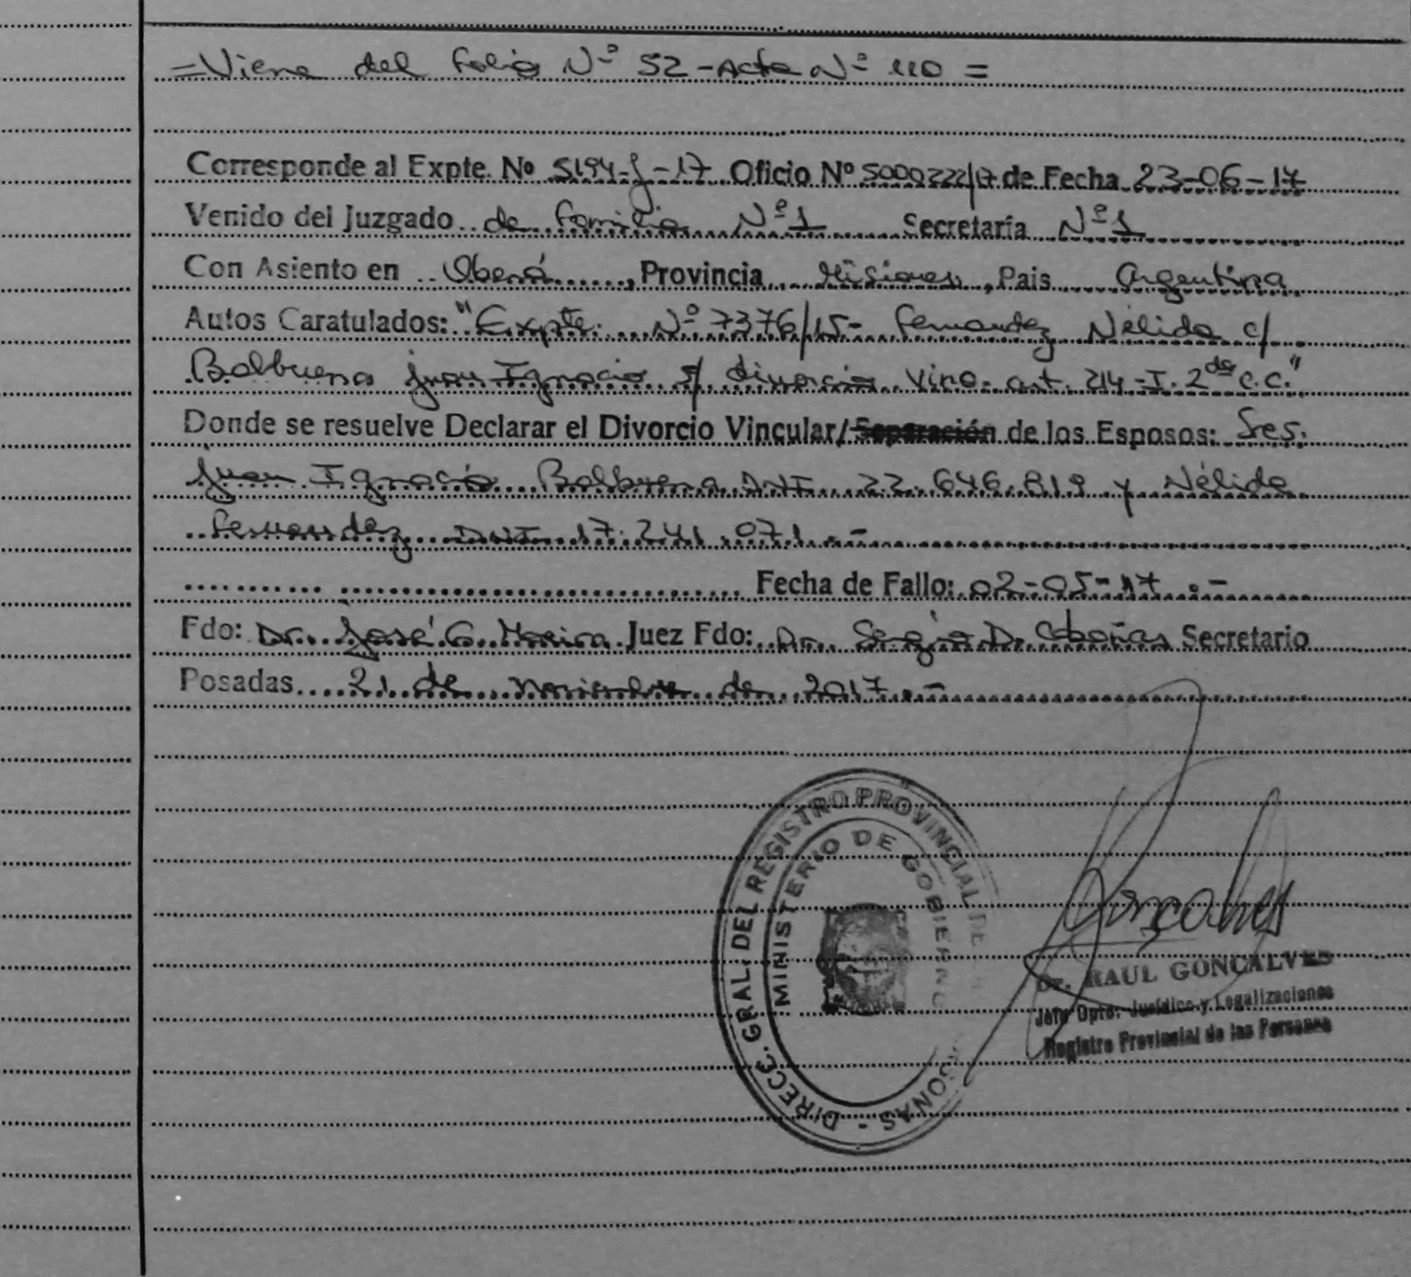 =Viene del folio Nº 52-Acta Nº 110=
Corresponde al Expte. Nº 5194-J-17 Oficio Nº 5000222/17 de Fecha 23-06-17
Venido del Juzgado de familia Nº1 Secretaría Nº1
Con Asiento en Oberá, Provincia Misiones, Pais Argentina
Autos Caratulados: "Expte. Nº 7376/15- Fernandez Nélida c/
Balbuena Juan Ignacio s/ divorcio vinc. art. 214-I. 2da c.c."
Donde se resuelve Declarar el Divorcio Vincular/Separación de los Esposos: Sres.
Juan Ignacio Balbuena DNI 22.646.819 y Nélida
Fernandez DNI 17.241.071.-
Fecha de Fallo: 02-05-17.-
Fdo: Dr. José G. Moreira Juez Fdo: Dr. Sergio D. Cabañas Secretario
Posadas 21 de noviembre de 2017.-
DIRECC. GRAL. DEL REGISTRO PROVINCIAL DE
MINISTERIO DE GOBIERNO
Gonçalves
Dr. RAUL GONCALVES
Jefe Dpto. Jurídico y Legalizaciones
Registro Provincial de las Personas